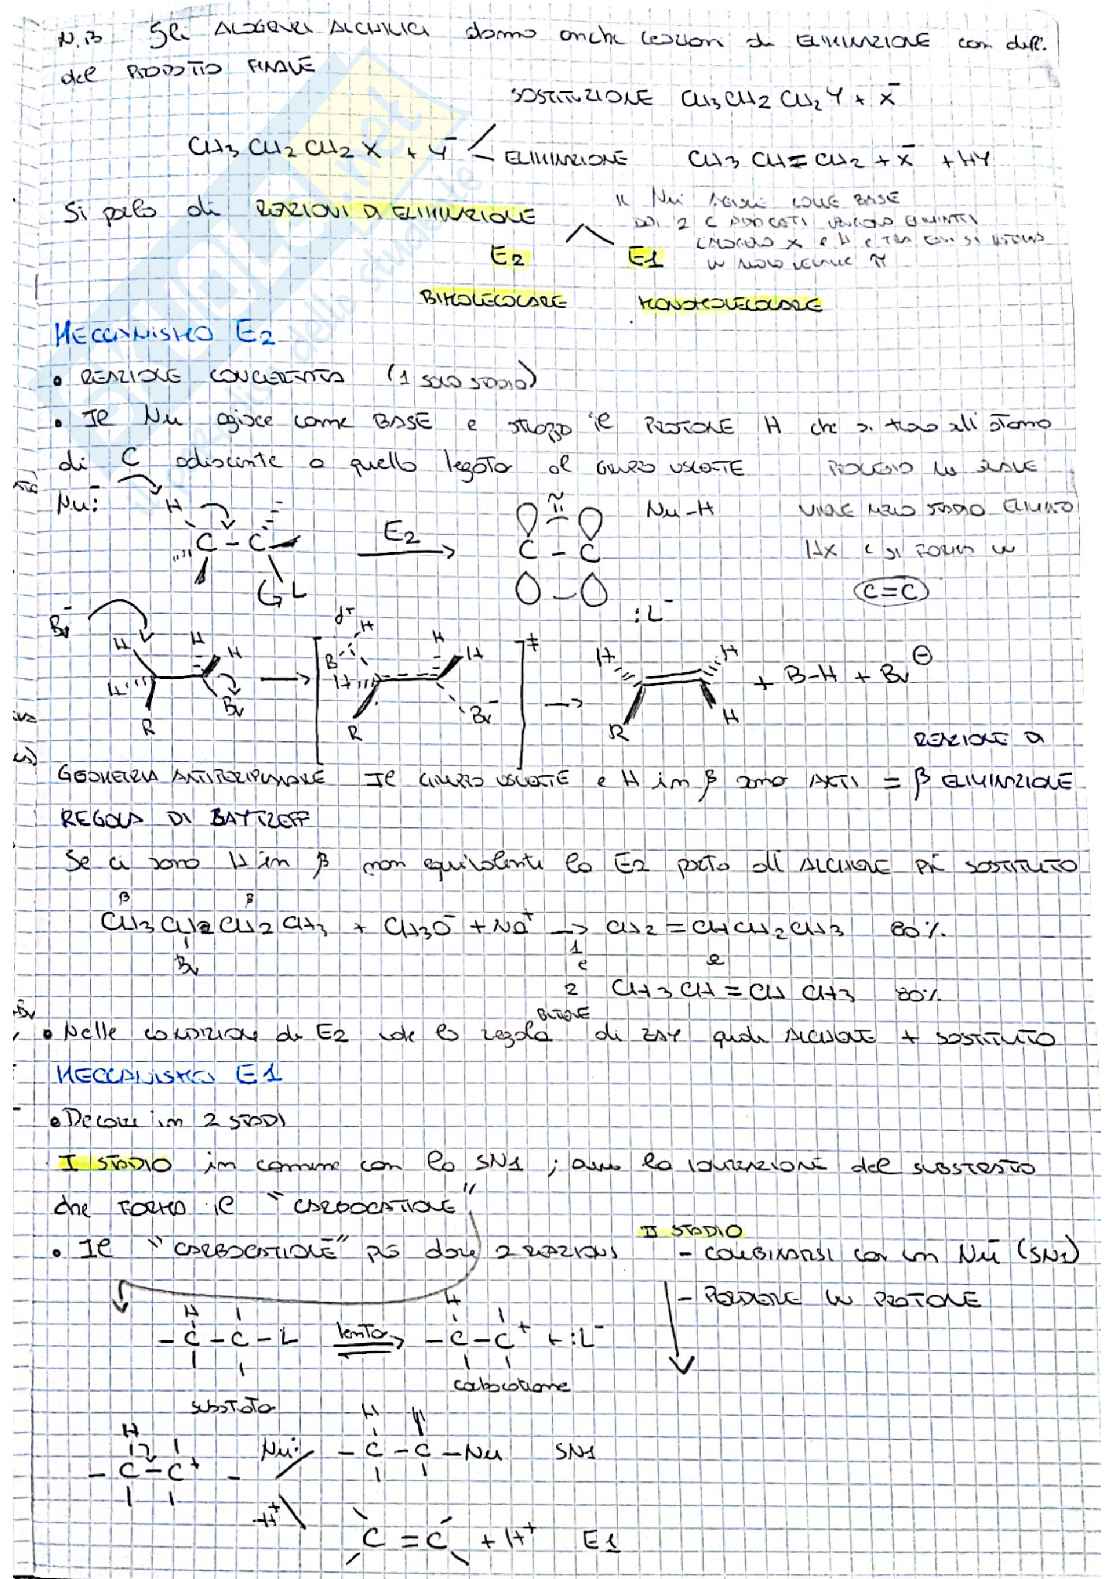 N.B Gli ALOGENURI ALCHILICI danno anche reazioni di ELIMINAZIONE con diff.
del PRODOTTO FINALE
SOSTITUZIONE CH3CH2CH2Y + X̄
CH3CH2CH2X + Y⁻
ELIMINAZIONE CH3CH=CH2 + X̄ + HY
Si parla di REAZIONI DI ELIMINAZIONE
Il Nu: agisce come BASE
E2 E1
BIMOLECOLARE MONOMOLECOLARE
MECCANISMO E2
• REAZIONE CONCERTATA (1 SOLO STADIO)
• Il Nu agisce come BASE e strappa il PROTONE H che si trova all'atomo
di C adiacente a quello legato al GRUPPO USCENTE
Nu:⁻ H
VIENE ELIMINATO
HX e si FORMA un
C=C
C - C E2 C - C Nu-H
GL :L⁻
Br⁻ H H H H R Br
δ⁺ H B H H H R Br⁻ ‡
H H R H + B-H + Br⊖
REAZIONE DI
GEOMETRIA ANTIPERIPLANARE Il GRUPPO USCENTE e H in β sono ANTI = β ELIMINAZIONE
REGOLA DI ZAYTZEFF
Se ci sono H in β non equivalenti la E2 porta all'ALCHENE PIÙ SOSTITUITO
β β
CH3CH2CH2CH3 + CH3O⁻ + Na⁺ → CH2=CHCH2CH3 80%
Br 1 e e
2 CH3CH=CH CH3 80%
BUTENE
• Nelle CONDIZIONI di E2 vale la regola di ZAY quindi ALCHENE + SOSTITUITO
MECCANISMO E1
• Decorre in 2 STADI
I STADIO in comune con la SN1 ; la IONIZZAZIONE del SUBSTRATO
che FORMA il "CARBOCATIONE"
II STADIO
• Il "CARBOCATIONE" può dare 2 REAZIONI - COMBINARSI con un Nu⁻ (SN1)
- PERDERE UN PROTONE
H H
- C - C - L lenta - C - C⁺ + :L⁻
carbocatione
substrato
H H
- C - C⁺ - Nu: - C - C - Nu SN1
-H⁺
C = C + H⁺ E1